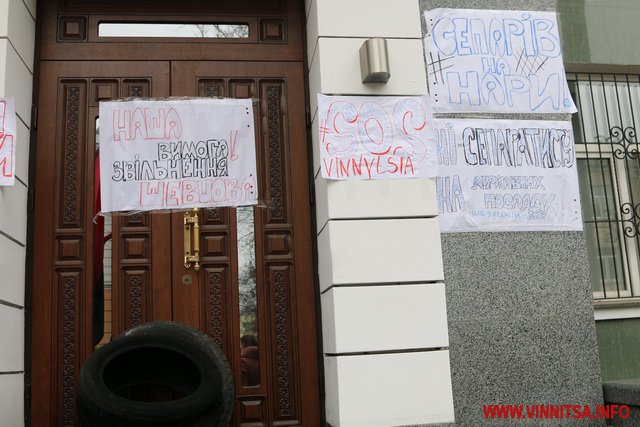 НАША
ВИМОГА
ЗВІЛЬНЕННЯ!
ШЕВЦОВА
#SOS
VINNYTSIA
СЕПАРІВ
# НА ###
НАРИ
НІ-СЕПАРАТИСТУ
НА ДЕРЖАВНИХ
ПОСАДАХ!
Й
WWW.VINNITSA.INFO